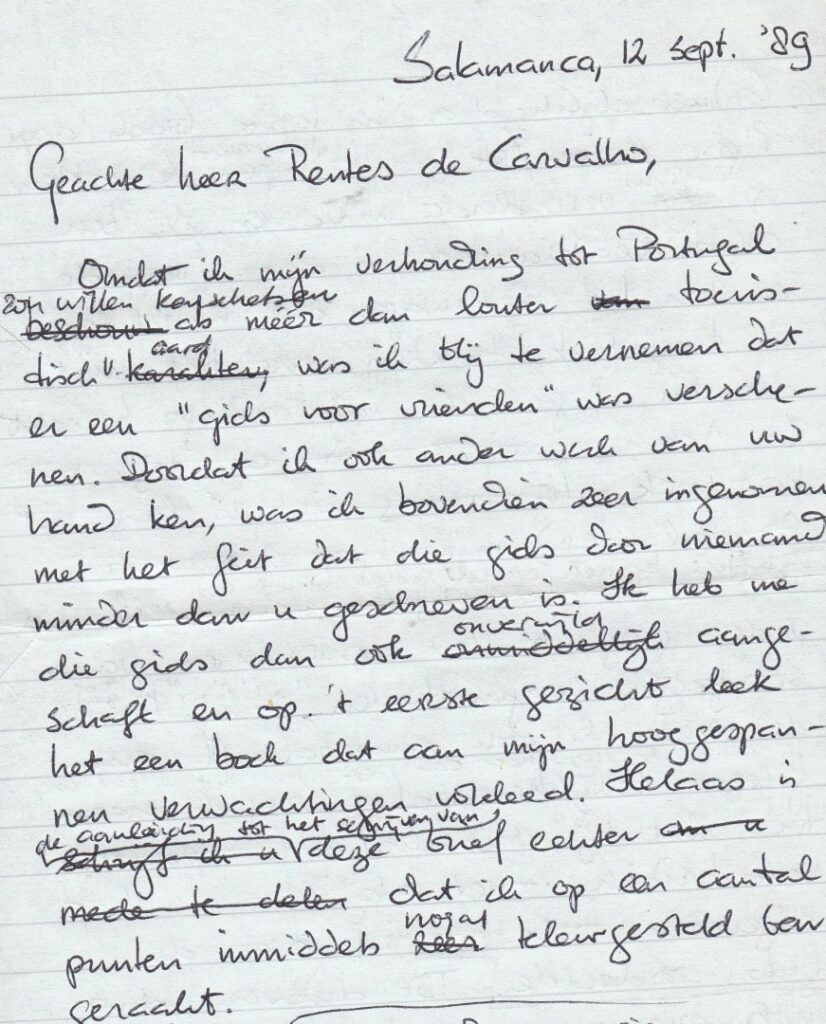 Salamanca, 12 sept. '89
Geachte heer Rentes de Carvalho,
Omdat ik mijn verhouding tot Portugal
zou willen karschetsen
beschouw als méér dan louter toeris-
aard
tisch v. karakter, was ik blij te vernemen dat
er een "gids voor vrienden" was versche-
nen. Doordat ik ook ander werk van uw
hand ken, was ik bovendien zeer ingenomen
met het feit dat die gids door niemand
minder dan u geschreven is. Ik heb me
onverwijld
die gids dan ook onmiddellijk aange-
schaft en op 't eerste gezicht leek
het een boek dat aan mijn hooggespan-
nen verwachtingen voldeed. Helaas is
de aanleiding tot het schrijven van
schrijf ik u deze brief echter om u
mede te delen dat ik op een aantal
nogal
punten inmiddels zeer teleurgesteld ben
geraakt.